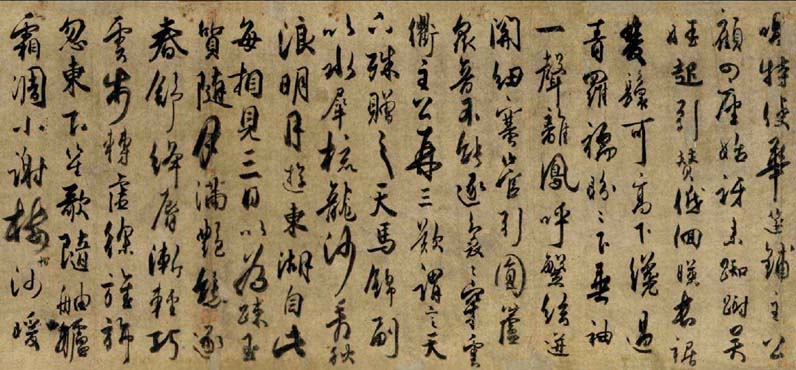 唱特使華筵鋪主公
顧四座始訝來踟躕吳
娃起引贊低佪暎長裾
雙鬟可高下纔過
青羅襦盼〻下垂袖
一聲離鳳呼繁絃迸
關紐塞管引圓蘆
衆音不能逐裊〻穿雲
衢主公再三歎謂言天
下殊贈之天馬錦副
以水犀梳龍沙看秋
浪明月遊東湖自此
每相見三日以為疎玉
質隨月滿豔態逐
春舒絳脣漸輕巧
雲步轉虛徐旌旆
忽東下笙歌隨舳艫
霜凋小謝樹沙暖